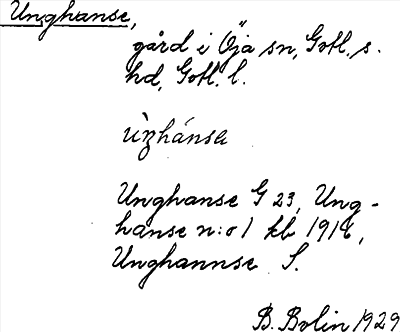 Unghanse,
gård i Öja sn, Gotl. s.
hd, Gotl. l.
Unghanse G 23, Ung-
hanse n:o 1 kb 1918,
Unghannse S.
B. Bolin 1929